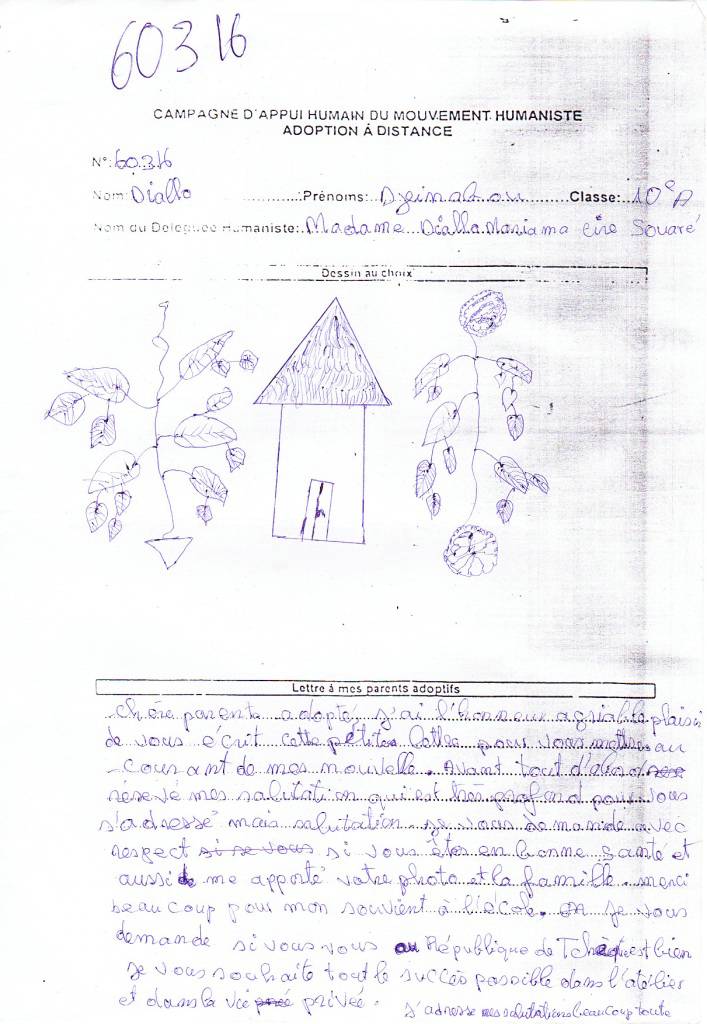 60316
CAMPAGNE D'APPUI HUMAIN DU MOUVEMENT HUMANISTE
ADOPTION À DISTANCE
N°: 60316
Nom: Diallo Prénoms: Dzeinabou Classe: 10e A
Nom du Délégué Humaniste: Madame Diallo Mariama Ciré Souaré
Dessin au choix
Lettre à mes parents adoptifs
chère parents adopté, j'ai l'honneur agriable plaisir
de vous écrit cette petites lettre pour vous mettre au
courant de mes nouvelle. Avant tout d'abord
réservé mes salutation qui est très profond pour vous
s'adressé mais salutation. je vous demande avec
respect si je vous si vous êtes en bonne santé et
aussi de me apporté votre photo et la famille. merci
beaucoup pour mon souvient à l'école. je vous
demande si vous vous au République de Tchèque est bien
je vous souhaite tout le succès possible dans l'atélier
et dans la vie privée. s'adresse mes salutations beaucoup toute